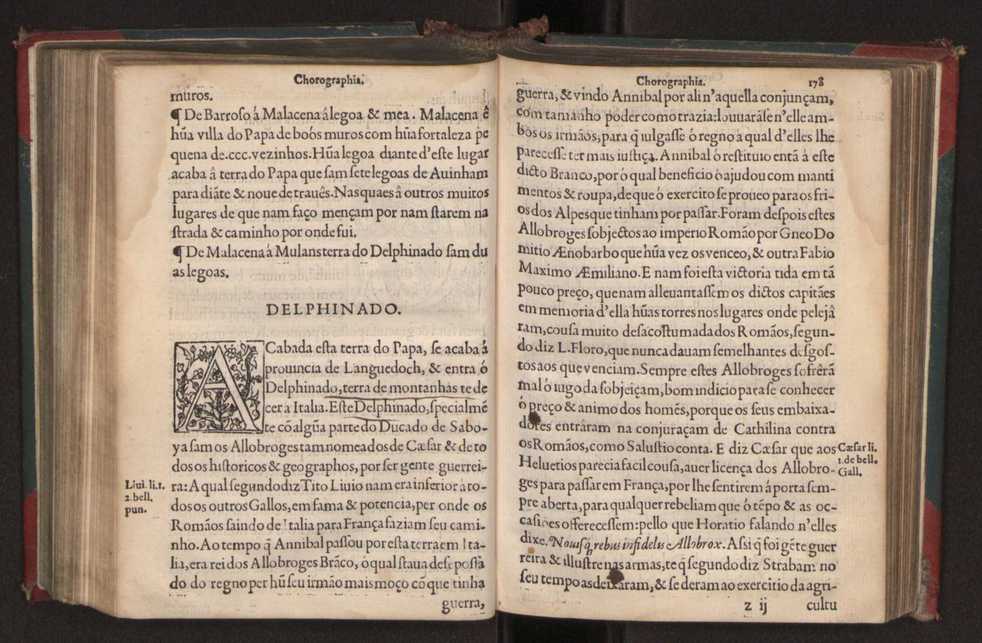 Chorographia.
muros.
¶ De Barroso á Malacena á legoa & mea. Malacena ê
hũa villa do Papa de boós muros com hũa fortaleza pe
quena de.ccc.vezinhos. Hũa legoa diante d'este lugar
acaba â terra do Papa que sam sete legoas de Auinham
para diãte & noue de trauẽs. Nas quaes â outros muitos
lugares de que nam faço mençam por nam starem na
strada & caminho por onde fui.
¶ De Malacena á Mulans terra do Delphinado sam du
as legoas.
DELPHINADO.
ACabada esta terra do Papa, se acaba á
prouincia de Languedoch, & entra ó
Delphinado, terra de montanhas te de
cer a Italia. Este Delphinado, specialmẽ
te cõ algũa parte do Ducado de Sabo-
ya sam os Allobroges tam nomeados de Cæsar & de to
dos os historicos & geographos, por ser gente guerrei-
ra: A qual segundo diz Tito Liuio nam era inferior á to-
dos os outros Gallos, em fama & potencia, per onde os
Romãos saindo de Italia para França faziam seu cami-
nho. Ao tempo q̃ Annibal passou por esta terra em Ita-
lia, era rei dos Allobroges Brãco, ó qual staua desepossã
do do regno per hũ seu irmão mais moço cõ que tinha
guerra,
Liui. li.1.
2. bell.
pun.
Chorographia. 178
guerra, & vindo Annibal por ali n'aquella conjunçam,
com tamanho poder como trazia: louuarãsen'elle am-
bos os irmãos, para q̃ iulgasse ó regno a qual d'elles lhe
parecesse ter mais iustiça. Annibal ó restituio entã á este
dicto Branco, por ó qual beneficio ó ajudou com manti
mentos & roupa, de que ó exercito se proueo para os fri-
os dos Alpes que tinham por passar. Foram despois estes
Allobroges sobjectos ao imperio Romão por Gneo Do
mitio Ænobarbo que hũa vez os venceo, & outra Fabio
Maximo Æmiliano. E nam foi esta victoria tida em tã
pouco preço, que nam alleuantassem os dictos capitães
em memoria d'ella hũas torres nos lugares onde pelejâ
ram, cousa muito desacostumada dos Romãos, segun-
do diz L. Floro, que nunca dauam semelhantes desgos-
tos aos que venciam. Sempre estes Allobroges sofrêrã
mal ó iugo da sobjeiçam, bom indicio para se conhecer
ó preço & animo dos homẽs, porque os seus embaixa-
dores entráram na conjuraçam de Cathilina contra
os Romãos, como Salustio conta. E diz Cæsar que aos
Heluetios parecia facil cousa, auer licença dos Allobro-
ges para passar em França, por lhe sentirem á porta sem-
pre aberta, para qualquer rebeliam que ó tẽpo & as oc-
casiões offerecessem: pello que Horatio falando n'elles
dixe. Nouisq́ rebus infidelis Allobrox. Assi q̃ foi gẽte guer
reira & illustre nas armas, te q̃ segundo diz Strabam no
seu tempo as deixaram, & se deram ao exercitio da agri-
z ij cultu
Cæsar li.
1. de bell.
Gall.